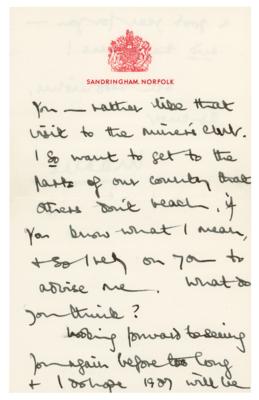 SANDRINGHAM. NORFOLK
You — rather like that
visit to the miners club.
I so want to get to the
parts of our country that
others don't reach, if
you know what I mean,
& so I rely on you to
advise me. What do
you think?
Looking forward to seeing
you again before too long
& I do hope 1987 will be